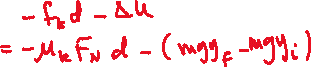 -f_k d - Δu
= -μ_k F_N d - (mgy_F - mgy_i)